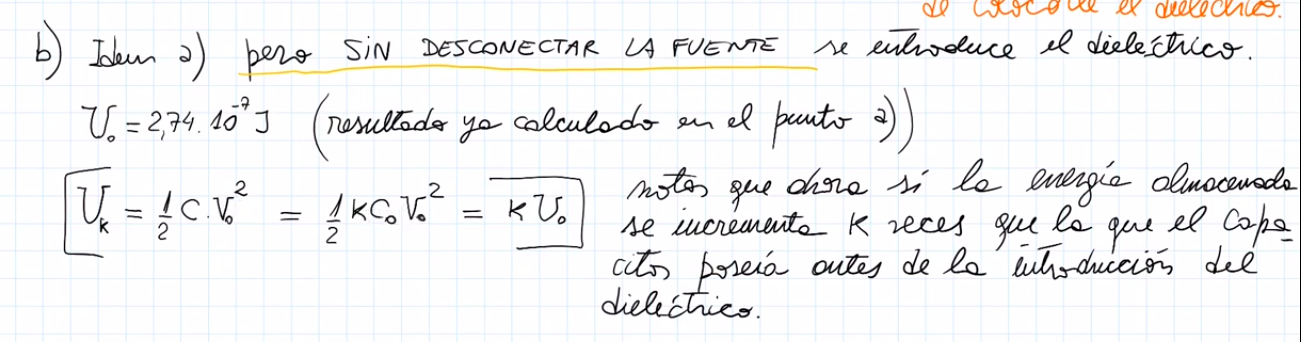 de colocarle el dieléctrico.
b) Idem a) pero SIN DESCONECTAR LA FUENTE se introduce el dieléctrico.
U₀ = 2,74.10⁻⁷ J (resultado ya calculado en el punto a))
Uₖ = 1/2 C.V₀² = 1/2 KC₀V₀² = KU₀
notar que ahora sí la energía almacenada
se incrementa K veces que la que el capa
citor poseía antes de la introducción del
dieléctrico.